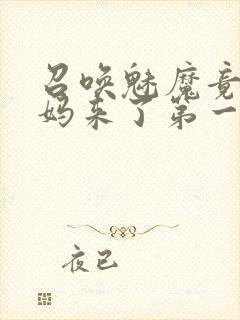 召唤魅魔竟
妈来了第一
夜已